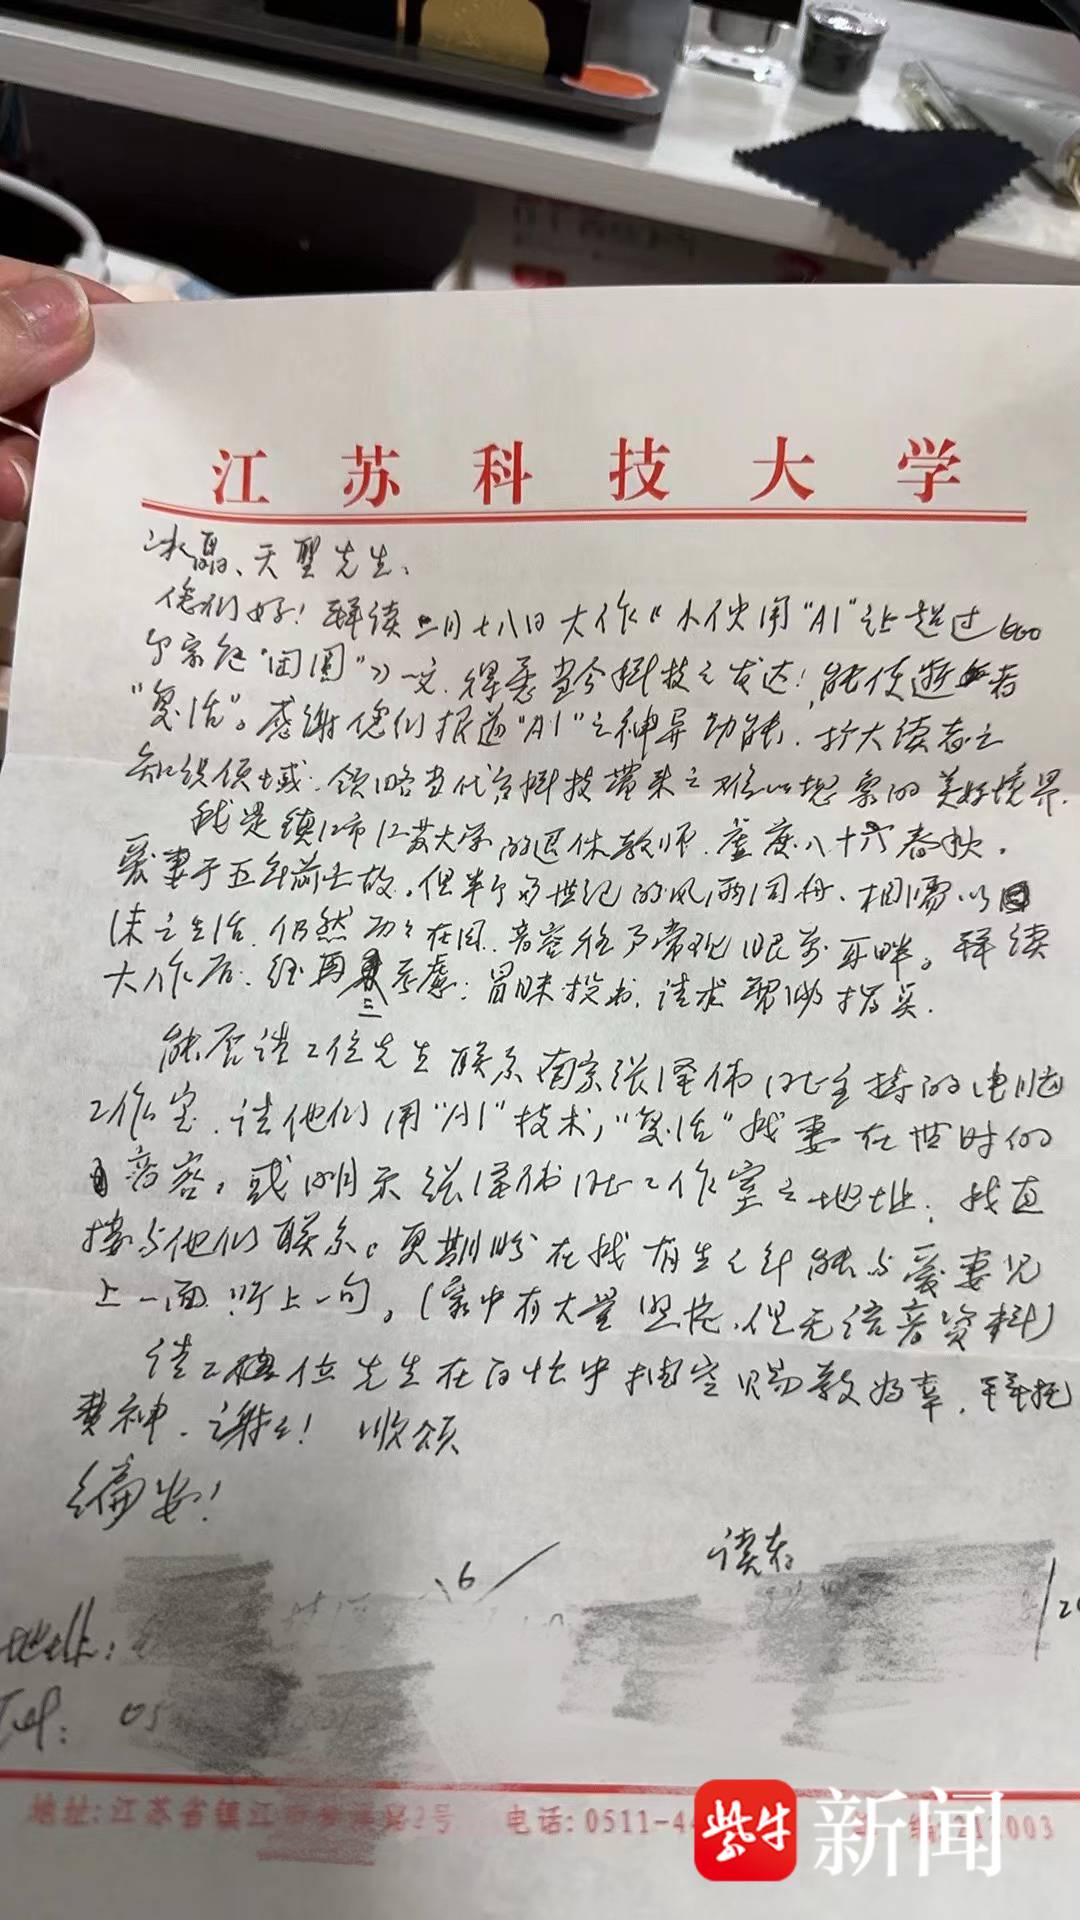 江苏科技大学
冰晶、天圣先生、
您们好！拜读二月十八日大作《小伙用"AI"让超过600
个家庭"团圆"》一文，得悉当今科技之发达！能使逝者
"复活"。感谢您们报道"AI"之神异功能，扩大读者之
知识领域，领略当代高科技带来之难以想象的美好境界。
我是镇江市江苏大学的退休教师，虚度八十六春秋。
爱妻于五年前去故，但半个多世纪的风雨同舟、相濡以
沫之生活，仍然历历在目，音容经予常现眼前耳畔。拜读
大作后，经再三考虑，冒昧投书，请求帮助指点。
能否请二位先生联系南京张泽伟先生主持的电脑
工作室，请他们用"AI"技术，"复活"我妻在世时的
音容，或明示张泽伟工作室之地址，我直
接与他们联系。更期盼在我有生之年能与爱妻见
上一面，听上一句。（家中有大量照片，但无语音资料）
请二位先生在百忙中抽空赐教为幸，拜托
费神，谢谢！ 顺颂
编安！
读者
地址：
Tel: 05
地址:江苏省镇江 2号 电话:0511-4 编 003
紫牛新闻